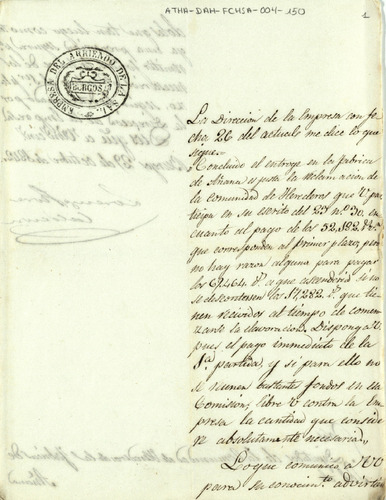 ATHA-DAH-FCHSA-004-150
1
EMPRESA DEL ARRIENDO DE LA SAL
BURGOS
La Direccion de la Empresa con fe
cha 26 del actual me dice lo que
sigue.
Concluido el entroje en la fabrica
de Añana y justa la reclamacion de
la comunidad de Herederos que V. par
ticipa en su escrito del 23 nº 30, en
cuanto al pago de los 52,182 rs.
que corresponden al primer plazo, pero
no hay razon alguna para pagar
los 69.464 rs. a que ascenderia si no
se descontasen los 17,282 rs. que tie
nen recividos al tiempo de comen
zar la elavoracion. Disponga V.
pues el pago inmediato de la
1ª partida, y si para ello no
se reunen bastante fondos en su
Comision, libre V. contra la Em
presa la cantidad que conside
re absolutamente necesaria.
Lo que comunico a VV
para su conocimto. advirtien